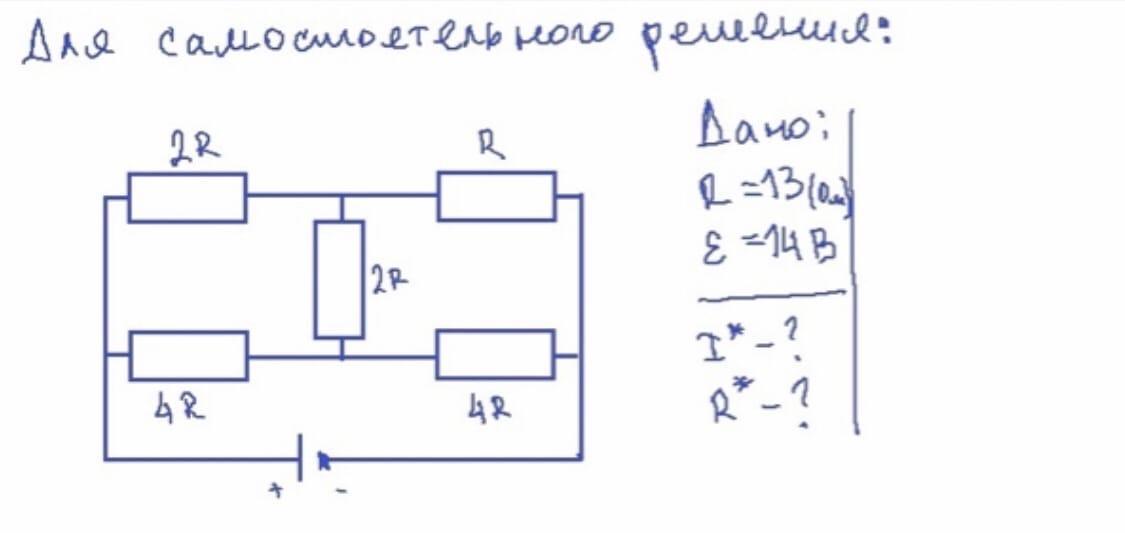 Для самостоятельного решения:
2R
R
2R
4R
4R
+ -
Дано:
R = 13 (Ом)
ε = 14 В
I* - ?
R* - ?